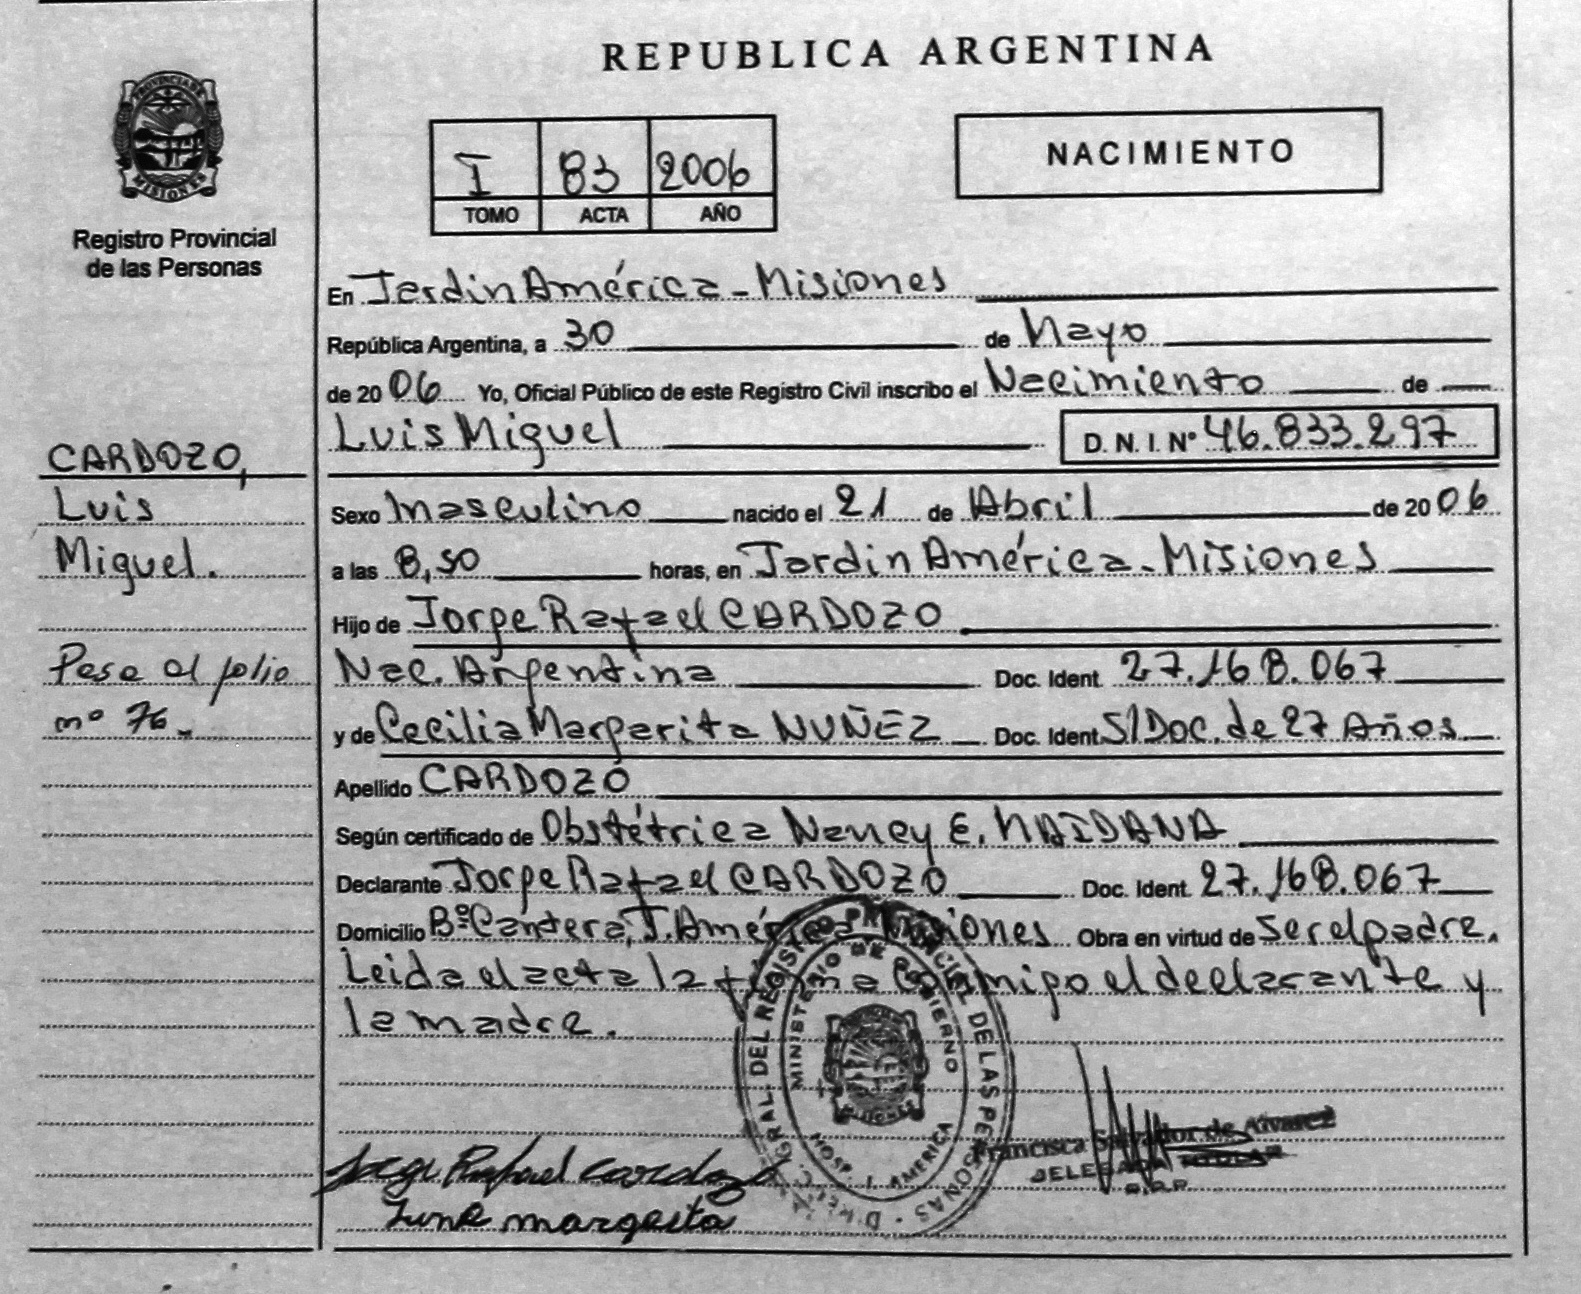 REPUBLICA ARGENTINA
PROVINCIA DE
MISIONES
Registro Provincial
de las Personas
I 83 2006
TOMO ACTA AÑO
NACIMIENTO
En Jardin América - Misiones
República Argentina, a 30 de Mayo
de 20 06 Yo, Oficial Público de este Registro Civil inscribo el Nacimiento de
Luis Miguel D.N.I. Nº 46.833.297
CARDOZO,
Luis
Miguel.
Pasa al folio
nº 76.
Sexo Masculino nacido el 21 de Abril de 20 06
a las 8,50 horas, en Jardin América - Misiones
Hijo de Jorge Rafael CARDOZO
Nac. Argentina Doc. Ident. 27.168.067
y de Cecilia Margarita NUÑEZ Doc. Ident. S/Doc. de 27 Años
Apellido CARDOZO
Según certificado de Obstétrica Nancy E. MAIDANA
Declarante Jorge Rafael CARDOZO Doc. Ident. 27.168.067
Domicilio Bº Cantera, J. América Misiones Obra en virtud de Ser el padre.
Leida el acta la firma conmigo el declarante y
la madre.
DEL REGISTRO PROVINCIAL DE LAS PERSONAS
MINISTERIO DE GOBIERNO
MISIONES
HOSP. J. AMERICA
Francisca Salvador de Alvarez
DELEGADA TITULAR
R.P.P.
Jorge Rafael Cardozo
margarita